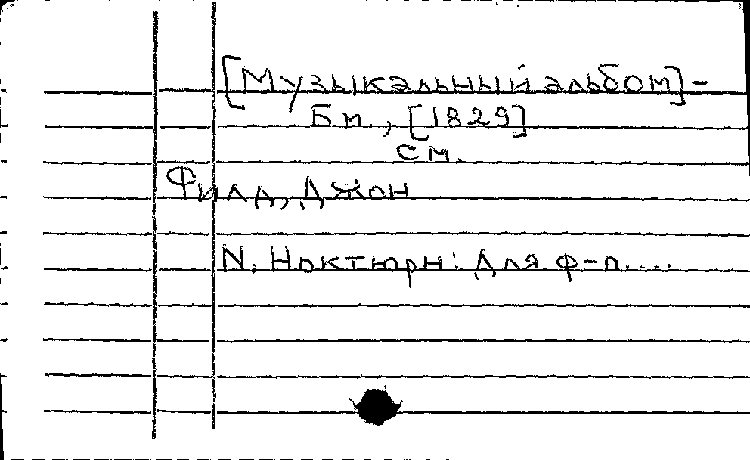 [Музыкальный альбом]-
Б.м., [1829]
см.
Филд, Джон
N. Ноктюрн: Для ф-п....